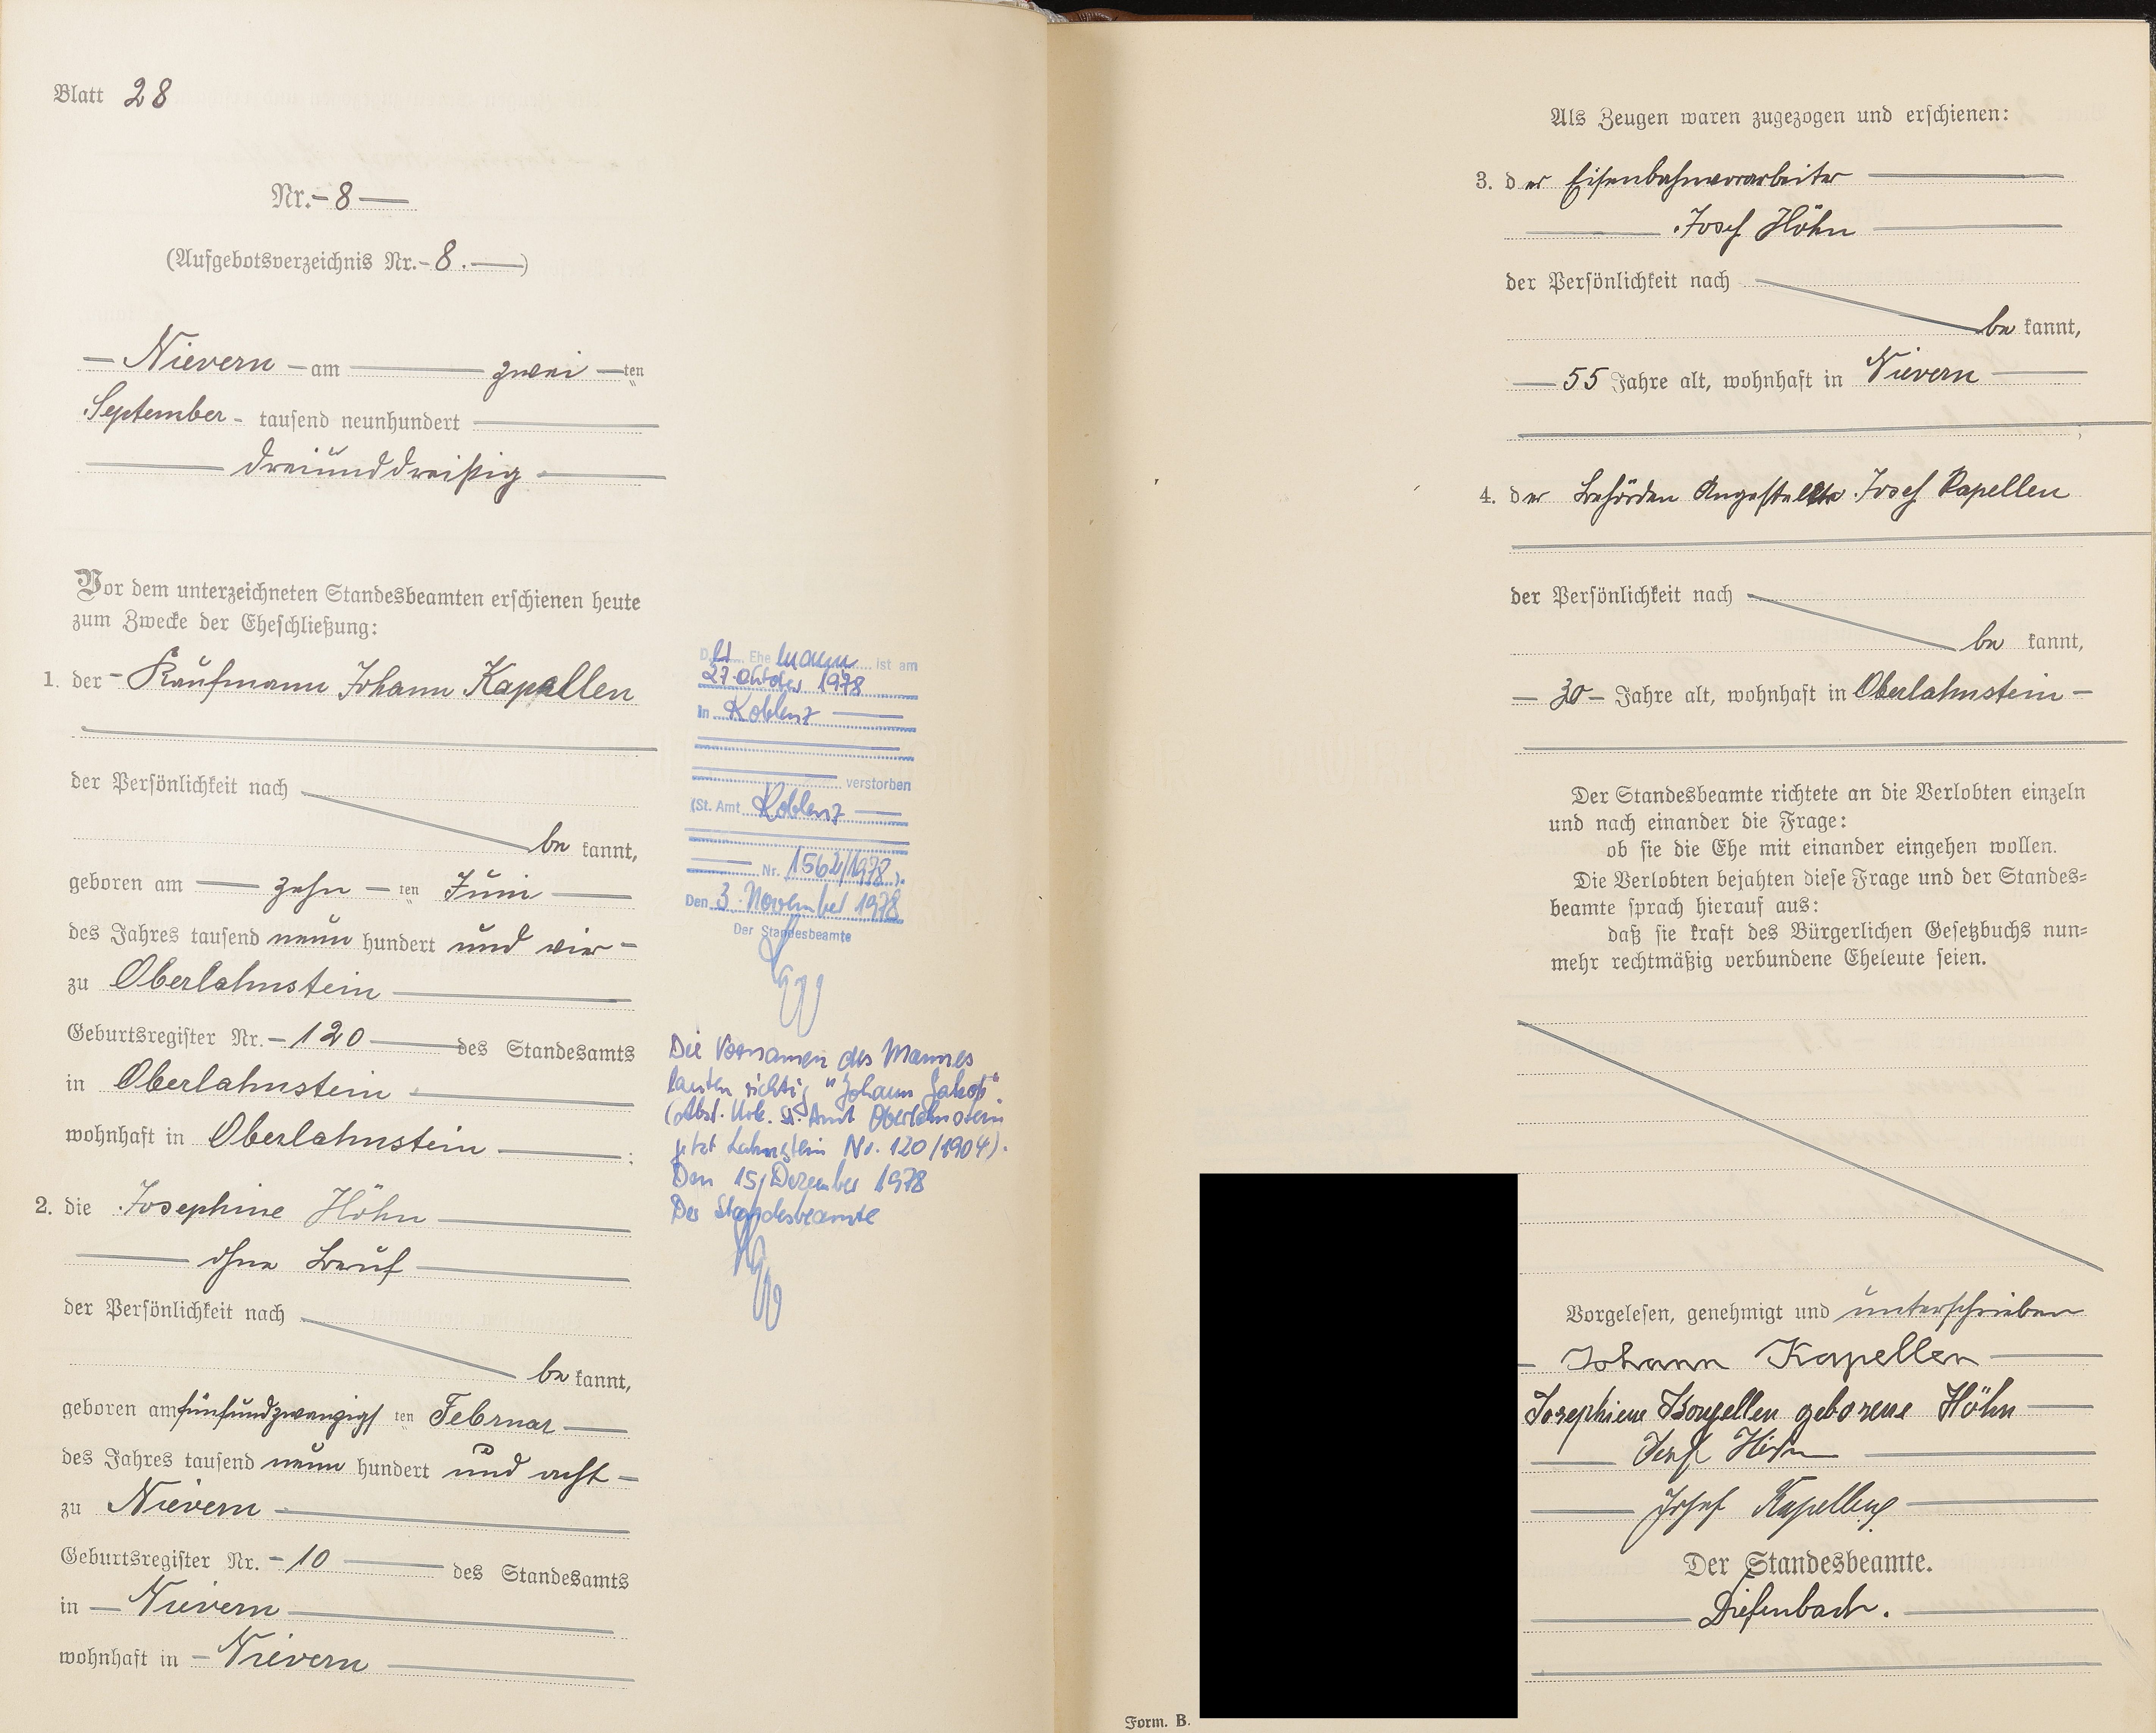 Blatt 28
Nr. - 8 —
(Aufgebotsverzeichnis Nr. - 8. —)
— Nievern — am — zwei — ten
September - tausend neunhundert —
— dreiunddreißig —
Vor dem unterzeichneten Standesbeamten erschienen heute
zum Zwecke der Eheschließung:
1. der - Kaufmann Johann Kapellen
der Persönlichkeit nach
be kannt,
geboren am — zehn — ten Juni —
des Jahres tausend neun hundert und vier —
zu Oberlahnstein —
Geburtsregister Nr. - 120 — des Standesamts
in Oberlahnstein —
wohnhaft in Oberlahnstein — ;
2. die Josephine Höhn —
— ohne Beruf —
der Persönlichkeit nach
be kannt,
geboren am fünfundzwanzigs ten Februar —
des Jahres tausend neun hundert und acht —
zu Nievern —
Geburtsregister Nr. - 10 — des Standesamts
in — Nievern —
wohnhaft in — Nievern —
D er Ehe mann ist am
27. Oktober 1978
in Koblenz —
verstorben
(St. Amt Koblenz —
— Nr. 1562/1978).
Den 3. November 1978
Der Standesbeamte
Die Vornamen des Mannes
lauten richtig "Johann Jakob"
(Abst. Urk. St. Amt Oberlahnstein
jetzt Lahnstein Nr. 120/1904).
Den 15. Dezember 1978
Der Standesbeamte
Als Zeugen waren zugezogen und erschienen:
3. der Eisenbahnvorarbeiter —
— Josef Höhn —
der Persönlichkeit nach
be kannt,
— 55 Jahre alt, wohnhaft in Nievern —
;
4. der Behörden Angestellte Josef Kapellen
der Persönlichkeit nach
be kannt,
— 30 — Jahre alt, wohnhaft in Oberlahnstein —
Der Standesbeamte richtete an die Verlobten einzeln
und nach einander die Frage:
ob sie die Ehe mit einander eingehen wollen.
Die Verlobten bejahten diese Frage und der Standes-
beamte sprach hierauf aus:
daß sie kraft des Bürgerlichen Gesetzbuchs nun-
mehr rechtmäßig verbundene Eheleute seien.
Vorgelesen, genehmigt und unterschrieben
— Johann Kapellen —
Josephiene Kapellen geborene Höhn —
— Josef Höhn —
— Josef Kapellen —
Der Standesbeamte.
— Diefenbach. —
Form. B.